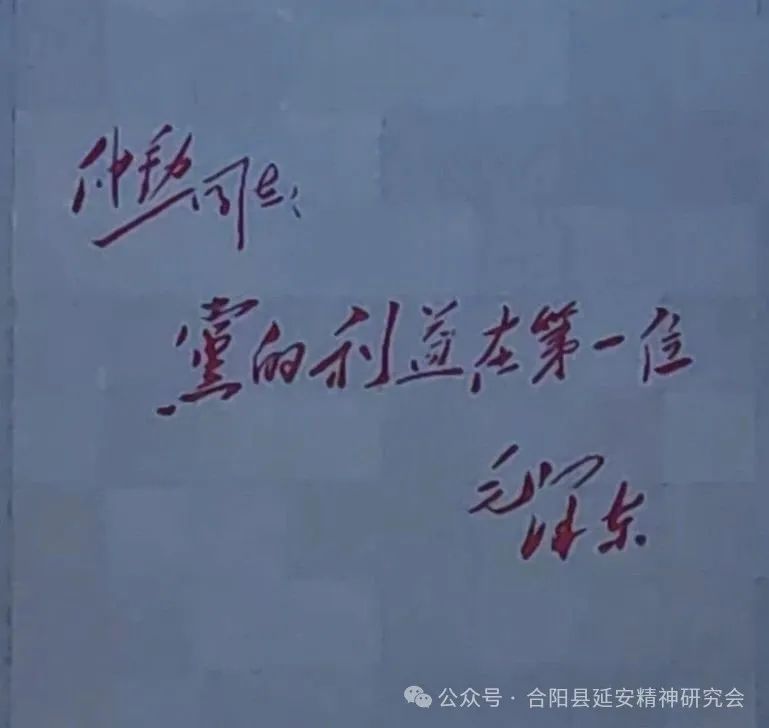 仲勋同志：
黨的利益在第一位
毛泽东
公众号·合阳县延安精神研究会